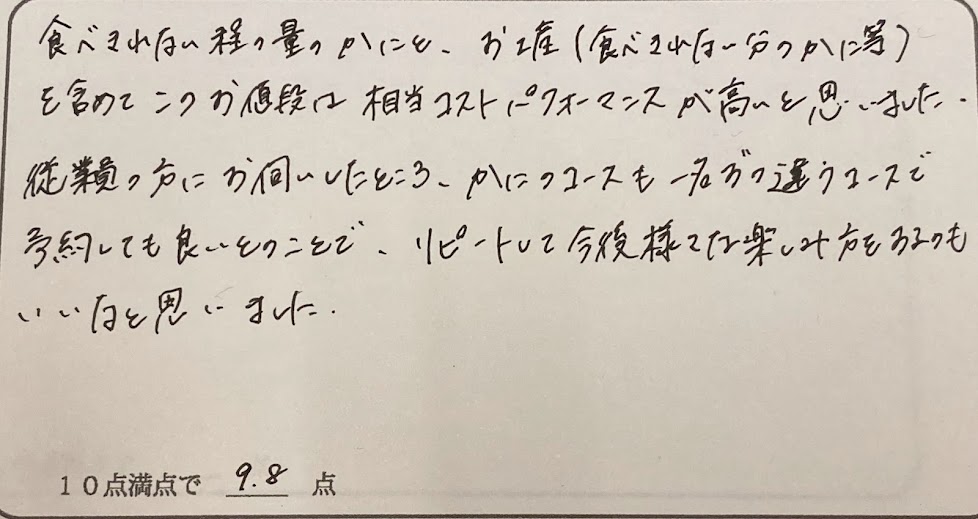 食べきれない程の量のかにと、お土産(食べきれない分のかに等)
を含めてこのお値段は相当コストパフォーマンスが高いと思いました.
従業員の方にお伺いしたところ、かにのコースも一名ずつ違うコースで
予約しても良いとのことで、リピートして今後様々な楽しみ方をするのも
いいなと思いました.
10点満点で 9.8 点